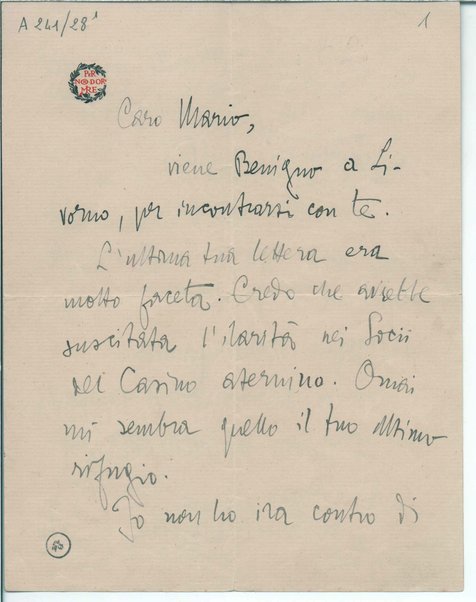 A 241/28¹
1
PER
NON DOR
MIRE
Caro Mario,
viene Benigno a Li-
vorno, per incontrarsi con te.
L'ultima tua lettera era
molto faceta. Credo che avrebbe
suscitata l'ilarità nei Socii
del Casino aternino. Omai
mi sembra quello il tuo ultimo
rifugio.
Io non ho ira contro di